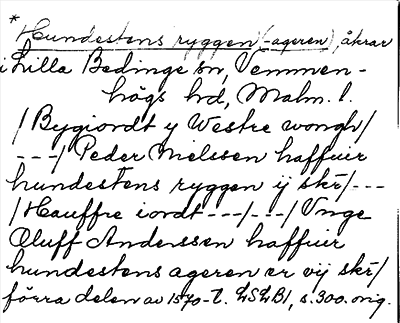 * Hundestens ryggen (-ageren), åkrar
i Lilla Bedinge sn, Vemmen-
högs hd, Malm. l.
/ Bygiordt y Westre wongh/
---/ Peder Nielssen haffuer
hundestens ryggen ij skr/---
/ Hauffre iordt ---/---/ Vnge
Oluff Anderssen haffuer
hundestens ageren er vij skr/
förra delen av 1570-t. LSLB1, s. 300. orig.